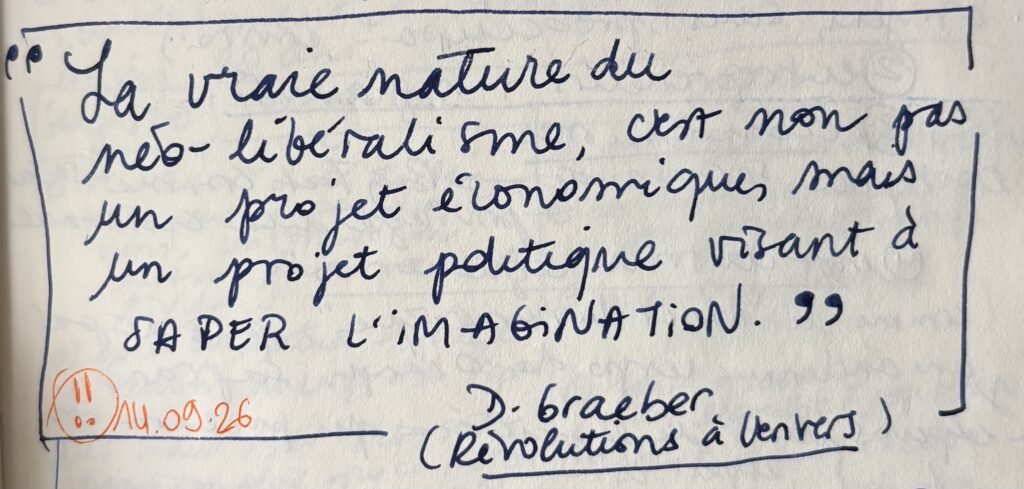 " La vraie nature du
néo-libéralisme, c'est non pas
un projet économique, mais
un projet politique visant à
SAPER L'iMAGiNATiON. "
D. Graeber
(Révolutions à l'envers)
!! 14.09.26